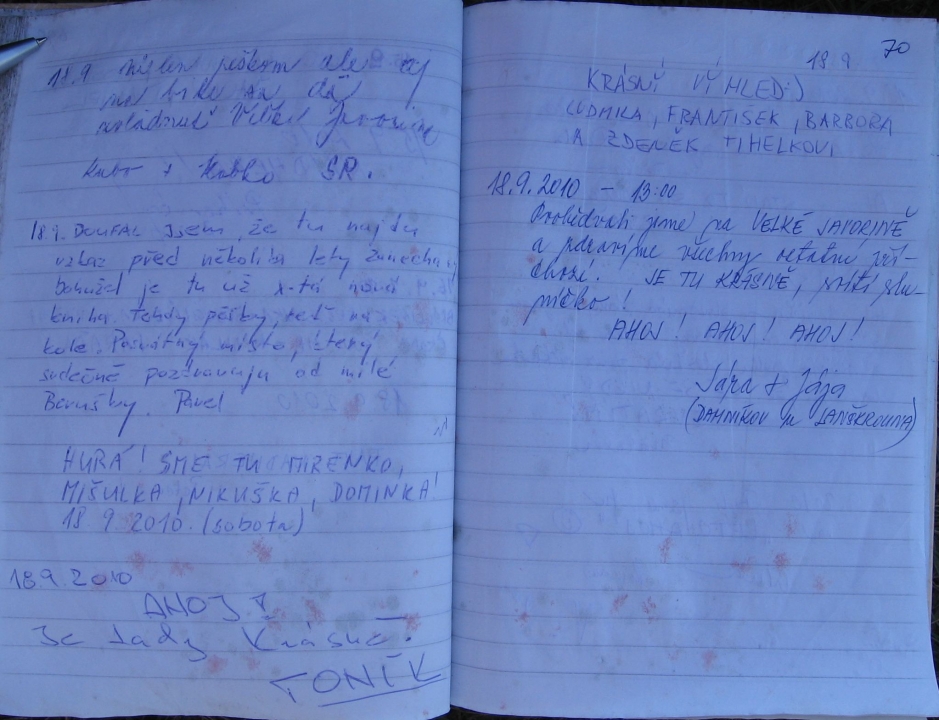 18.9 pěškom ale aj
na sa dá
Veľkú Javorinu
Kubo + SR.
18.9. DOUFAL Jsem, že tu najdu
vzkaz před několika lety
bohužel je tu už x-tá nová
kniha. Tehdy pěšky, teď na
kole. Posvátný místo, který
srdečně pozdravuju od milé
Berušky. Pavel
HURÁ! SME TU MIRENKO,
MIŠULKA, NIKUŠKA, DOMINKA!
18.9.2010. (sobota)
18.9.2010
AHOJ!
Je tady krásně.
TONÍK
70
18.9
KRÁSNÍ VÍHLED:)
LUDMILA, FRANTIŠEK, BARBORA
A ZDENĚK TIHELKOVI
18.9.2010 - 13:00
jsme na VELKÉ JAVOŘINĚ
a zdravíme všechny ostatní
JE TU KRÁSNĚ, svítí slu-
níčko!
AHOJ! AHOJ! AHOJ!
Jára + Jája
(DAMNÍKOV u LANŠKROUNA)